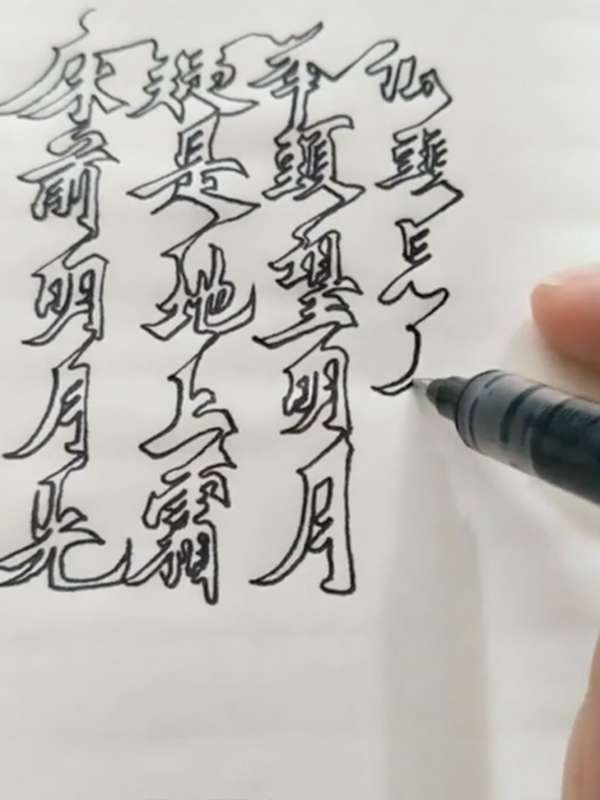 床前明月光
疑是地上霜
举頭望明月
低頭